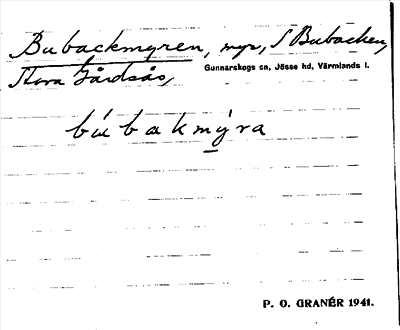 Bubackmyren, myr, S Bubacken,
Stora Gårdsås,
Gunnarskogs sn, Jösse hd, Värmlands l.
búbakmỳra
P. O. GRANÉR 1941.